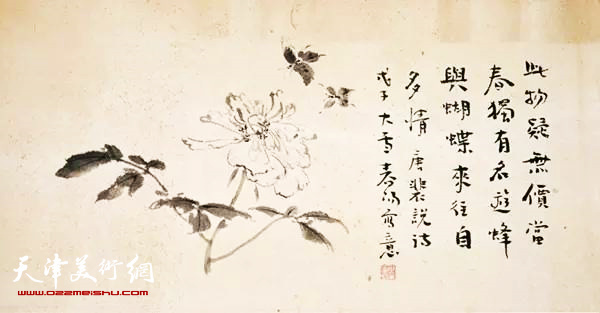 此物疑無價當
春獨有名遊蜂
與蝴蝶來往自
多情 唐裴說詩
戊子大雪春寫意
天津美術網
www.022meishu.com